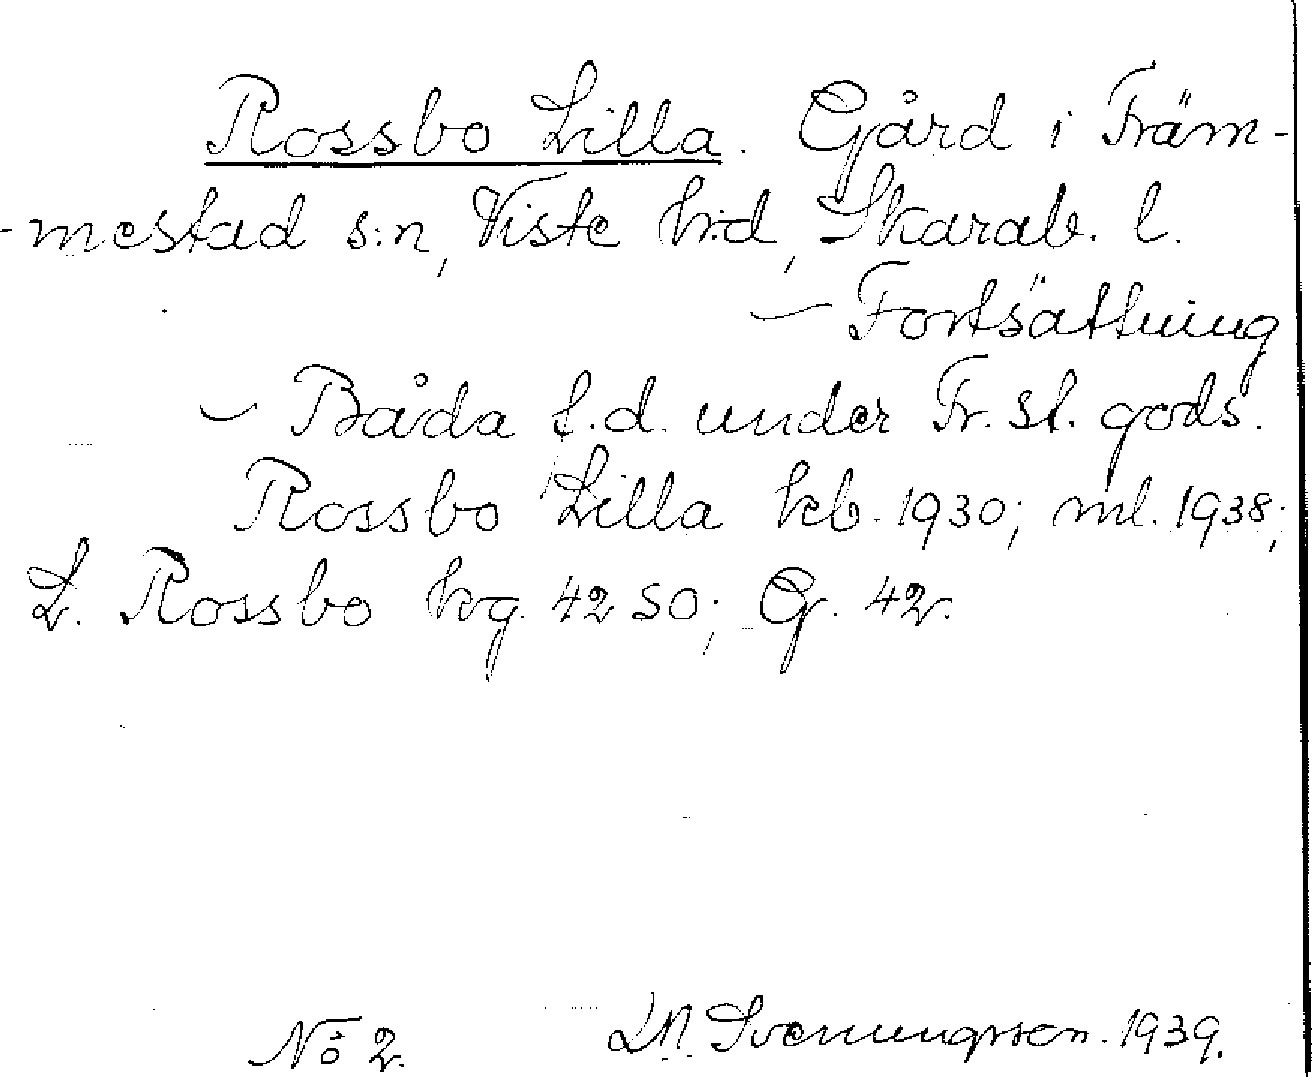 Rossbo Lilla. Gård i Främ-
-mestad s:n, Viste h:d, Skarab. l.
– Fortsättning
– Båda f.d. under Fr.st. gods.
Rossbo Lilla kb. 1930; ml. 1938;
L. Rossbo kvg. 42 SO; G. 42.
No 2. D.N. Svenungsson. 1939.